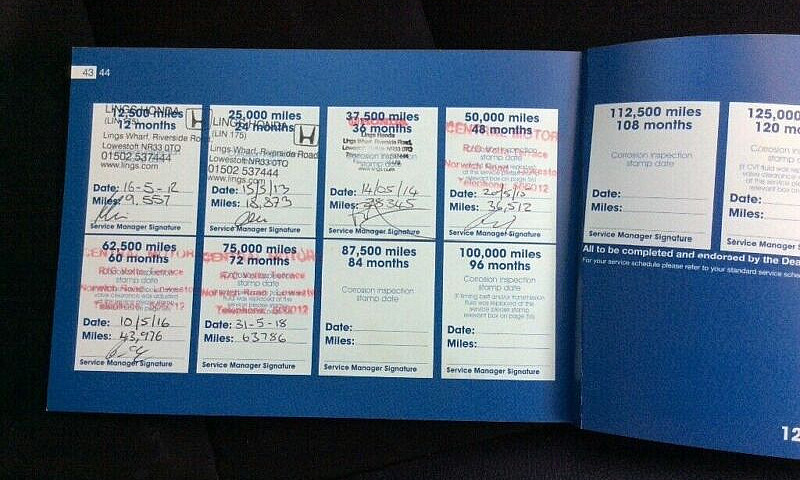 43 44
LINGS HONDA
12,500 miles
12 months
(LIN 175)
Lings Wharf, Riverside Road
Lowestoft NR33 0TQ
01502 537444
www.lings.com
Date: 16-5-12
Miles: 9,557
Service Manager Signature
LINGS HONDA
25,000 miles
24 months
(LIN 175)
Lings Wharf, Riverside Road
Lowestoft NR33 0TQ
01502 537444
www.lings.com
Date: 15/5/13
Miles: 18,873
Service Manager Signature
37,500 miles
36 months
Lings Honda
Lings Wharf Riverside Road,
Corrosion inspection
stamp date
Date: 14/05/14
Miles: 28345
Service Manager Signature
50,000 miles
48 months
CENTRAL MOTOR
R/O Volta Terrace
stamp date
Norwich Road
Telephone
Date: 20/5/15
Miles: 36,512
Service Manager Signature
62,500 miles
60 months
CENTRAL MOTOR
R/O Volta Terrace
stamp date
Norwich Road Lowestoft
Telephone
Date: 10/5/16
Miles: 43,976
Service Manager Signature
75,000 miles
72 months
CENTRAL MOTOR
R/O Volta Terrace
stamp date
Norwich Road Lowestoft
Telephone
Date: 31-5-18
Miles: 63786
Service Manager Signature
87,500 miles
84 months
Corrosion inspection
stamp date
Date:
Miles:
Service Manager Signature
100,000 miles
96 months
Corrosion inspection
stamp date
If timing belt and/or transmission
fluid was replaced at
the service please stamp
relevant box on page
Date:
Miles:
Service Manager Signature
112,500 miles
108 months
Corrosion inspection
stamp date
Date:
Miles:
Service Manager Signature
125,000
120 mo
Corrosion
stamp
Date:
Miles:
Service Man
All to be completed and endorsed by the Dea
For your service schedule please refer to your standard service sche
12